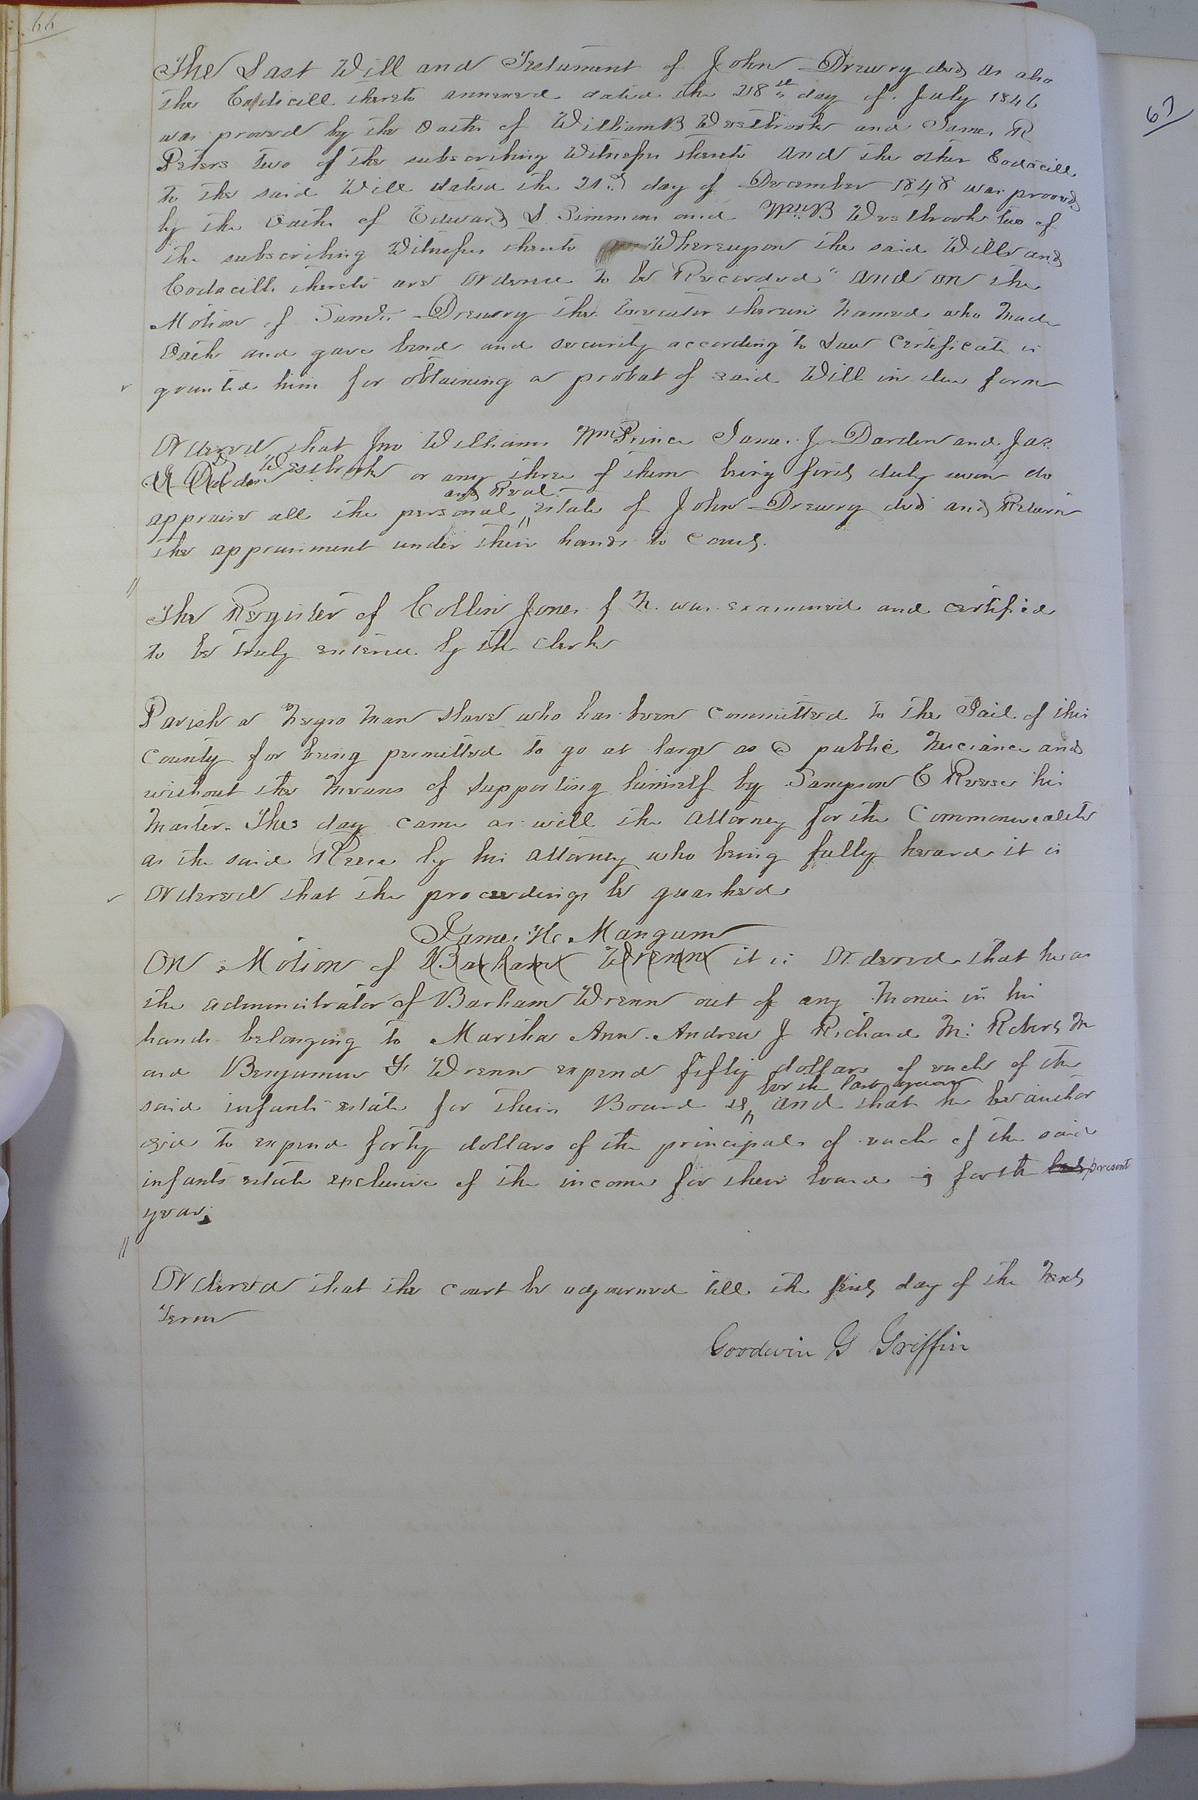 66
67
The Last Will and Testament of John Drewry decd as also
the Codicill thereto annexed dated the 28th day of July 1846
was proved by the Oaths of William B Westbrook and James R
Peters two of the subscribing Witnesses thereto and the other Codacill
to the said Will dated the 21st day of December 1848 was proved
by the Oaths of Edward S Simmons and Wm B Westbrook two of
the subscribing Witnesses thereto Whereupon the said Will and
Codacills thereto are ordered to be Recorded And on the
Motion of Saml Drewry the Executor therein named who made
Oath and gave bond and security according to Law Certificate is
granted him for obtaining a probat of said Will in due form
Ordered that Jno Williams Wm Prince James J Darden and Jas
Westbrook or any three of them being first duly sworn do
and Real
appraise all the personal estate of John Drewry decd and Return
the appraisment under their hands to Court.
The Register of Collin Jones f N. was examined and certified
to be truly entered by the Clerk
Parish a Negro Man Slave who has been committed to the Jail of this
County for being permitted to go at large as a public Nuciance and
without the means of supporting himself by Sampson C Reese his
Master. This day came as will the Attorney for the Commonwealth
as the said Reese by his Attorney who being fully heard it is
Ordered that the proceedings be quashed
James H. Mangum
On Motion of Barham Wrenn it is Ordered that he as
the administrator of Barham Wrenn out of any monies in his
hands belonging to Martha Ann. Andrew J Richard M: Robert M
and Benjamin F Wrenn expend fifty dollars of each of the
for the last year
said infants estate for their Board &c and that he be author
ized to expend forty dollars of the principal of each of the said
infants estate exclusive of the income for their board for the last present
year.
Ordered that the court be adjourned till the first day of the Next
Term
Goodwin G Griffin